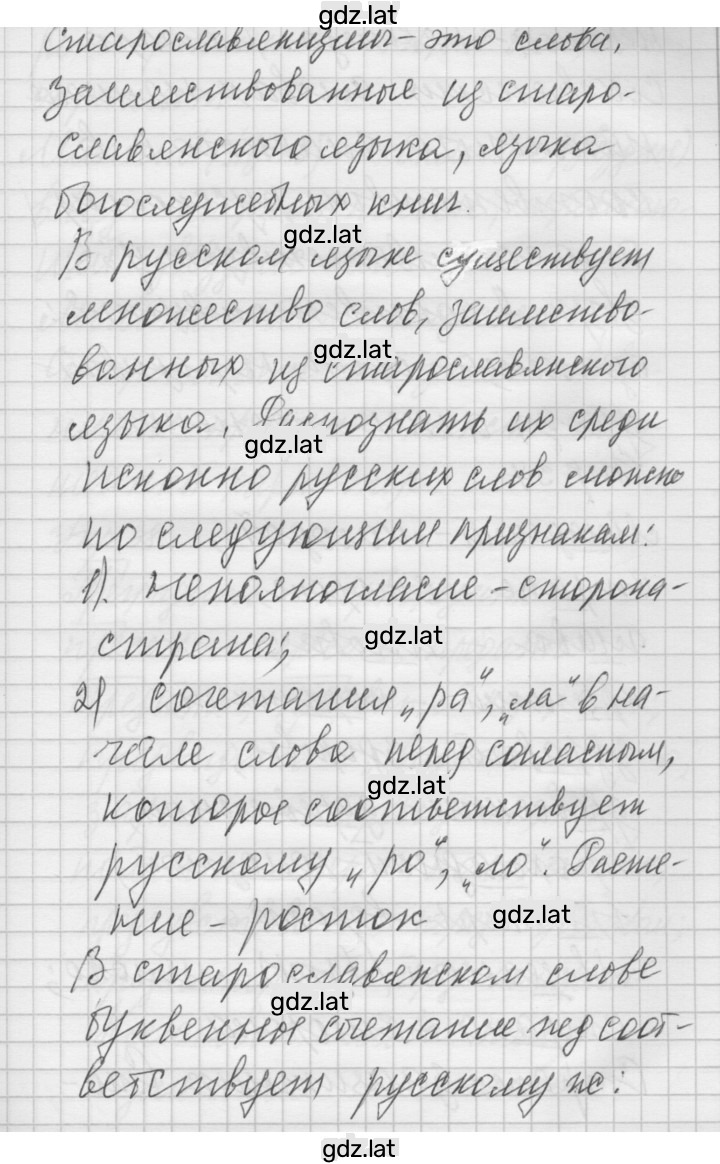 gdz.lat
Старославянизмы – это слова,
заимствованные из старо-
славянского языка, языка
богослужебных книг.
gdz.lat
В русском языке существует
множество слов, заимство-
gdz.lat
ванных из старославянского
языка. Распознать их среди
gdz.lat
исконно русских слов можно
по следующим признакам:
1). неполногласие – сторона-
страна;
gdz.lat
2) сочетания „ра“, „ла“ в на-
чале слова перед согласным,
gdz.lat
которое соответствует
русскому „ро“, „ло“. Расте-
ние – росток
gdz.lat
В старославянском слове
gdz.lat
буквенное сочетание жд соот-
ветствует русскому ж:
gdz.lat